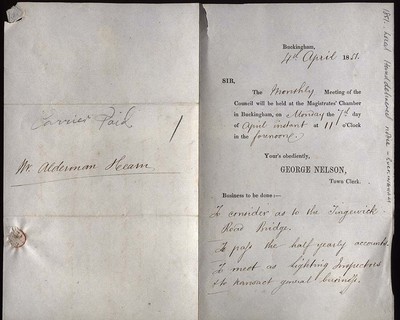 Carrier Paid
Mr. Alderman Hearn
Buckingham,
4th April 1851.
SIR,
The Monthly Meeting of the
Council will be held at the Magistrates' Chamber
in Buckingham, on Monday the 7th day
of April instant at 11 o'Clock
in the forenoon.
Your's obediently,
GEORGE NELSON,
Town Clerk.
Business to be done :—
To consider as to the Tingewick
Road Bridge.
To pass the half yearly accounts.
To meet as lighting Inspectors
& to transact general business.
1851. Local Hand delivered note - Buckingham